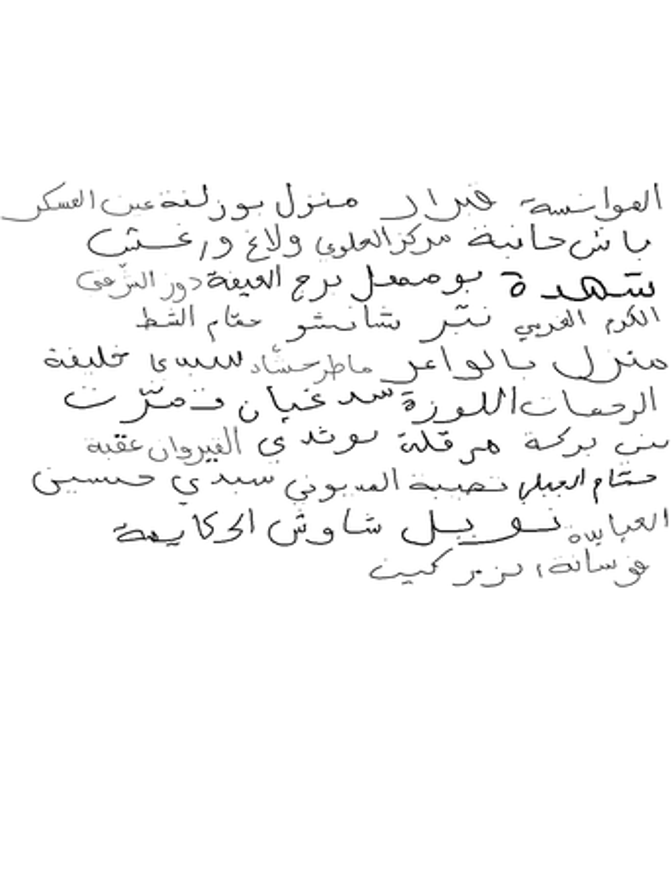 الهوانسة قبرار منزل بوزلفة عين العسكر
باش حانبة مركز العلوي ولاغ ورغش
شهدة بوصمعل برج العيفة دوز الشرقي
الكرم الغربي نبّر شانشو حمّام الشط
منزل بالواعر ماطر حشّاد سيدي خليفة
الرحمات اللوزة سد غيان قمّرت
بني بركة هرقلة بوثدي القيروان عقبة
حمّام الجبلي نصيبة المديوني سيدي حسين
العباسة نوبل شاوش الحكايمة
فوسانة، بزبر كيب